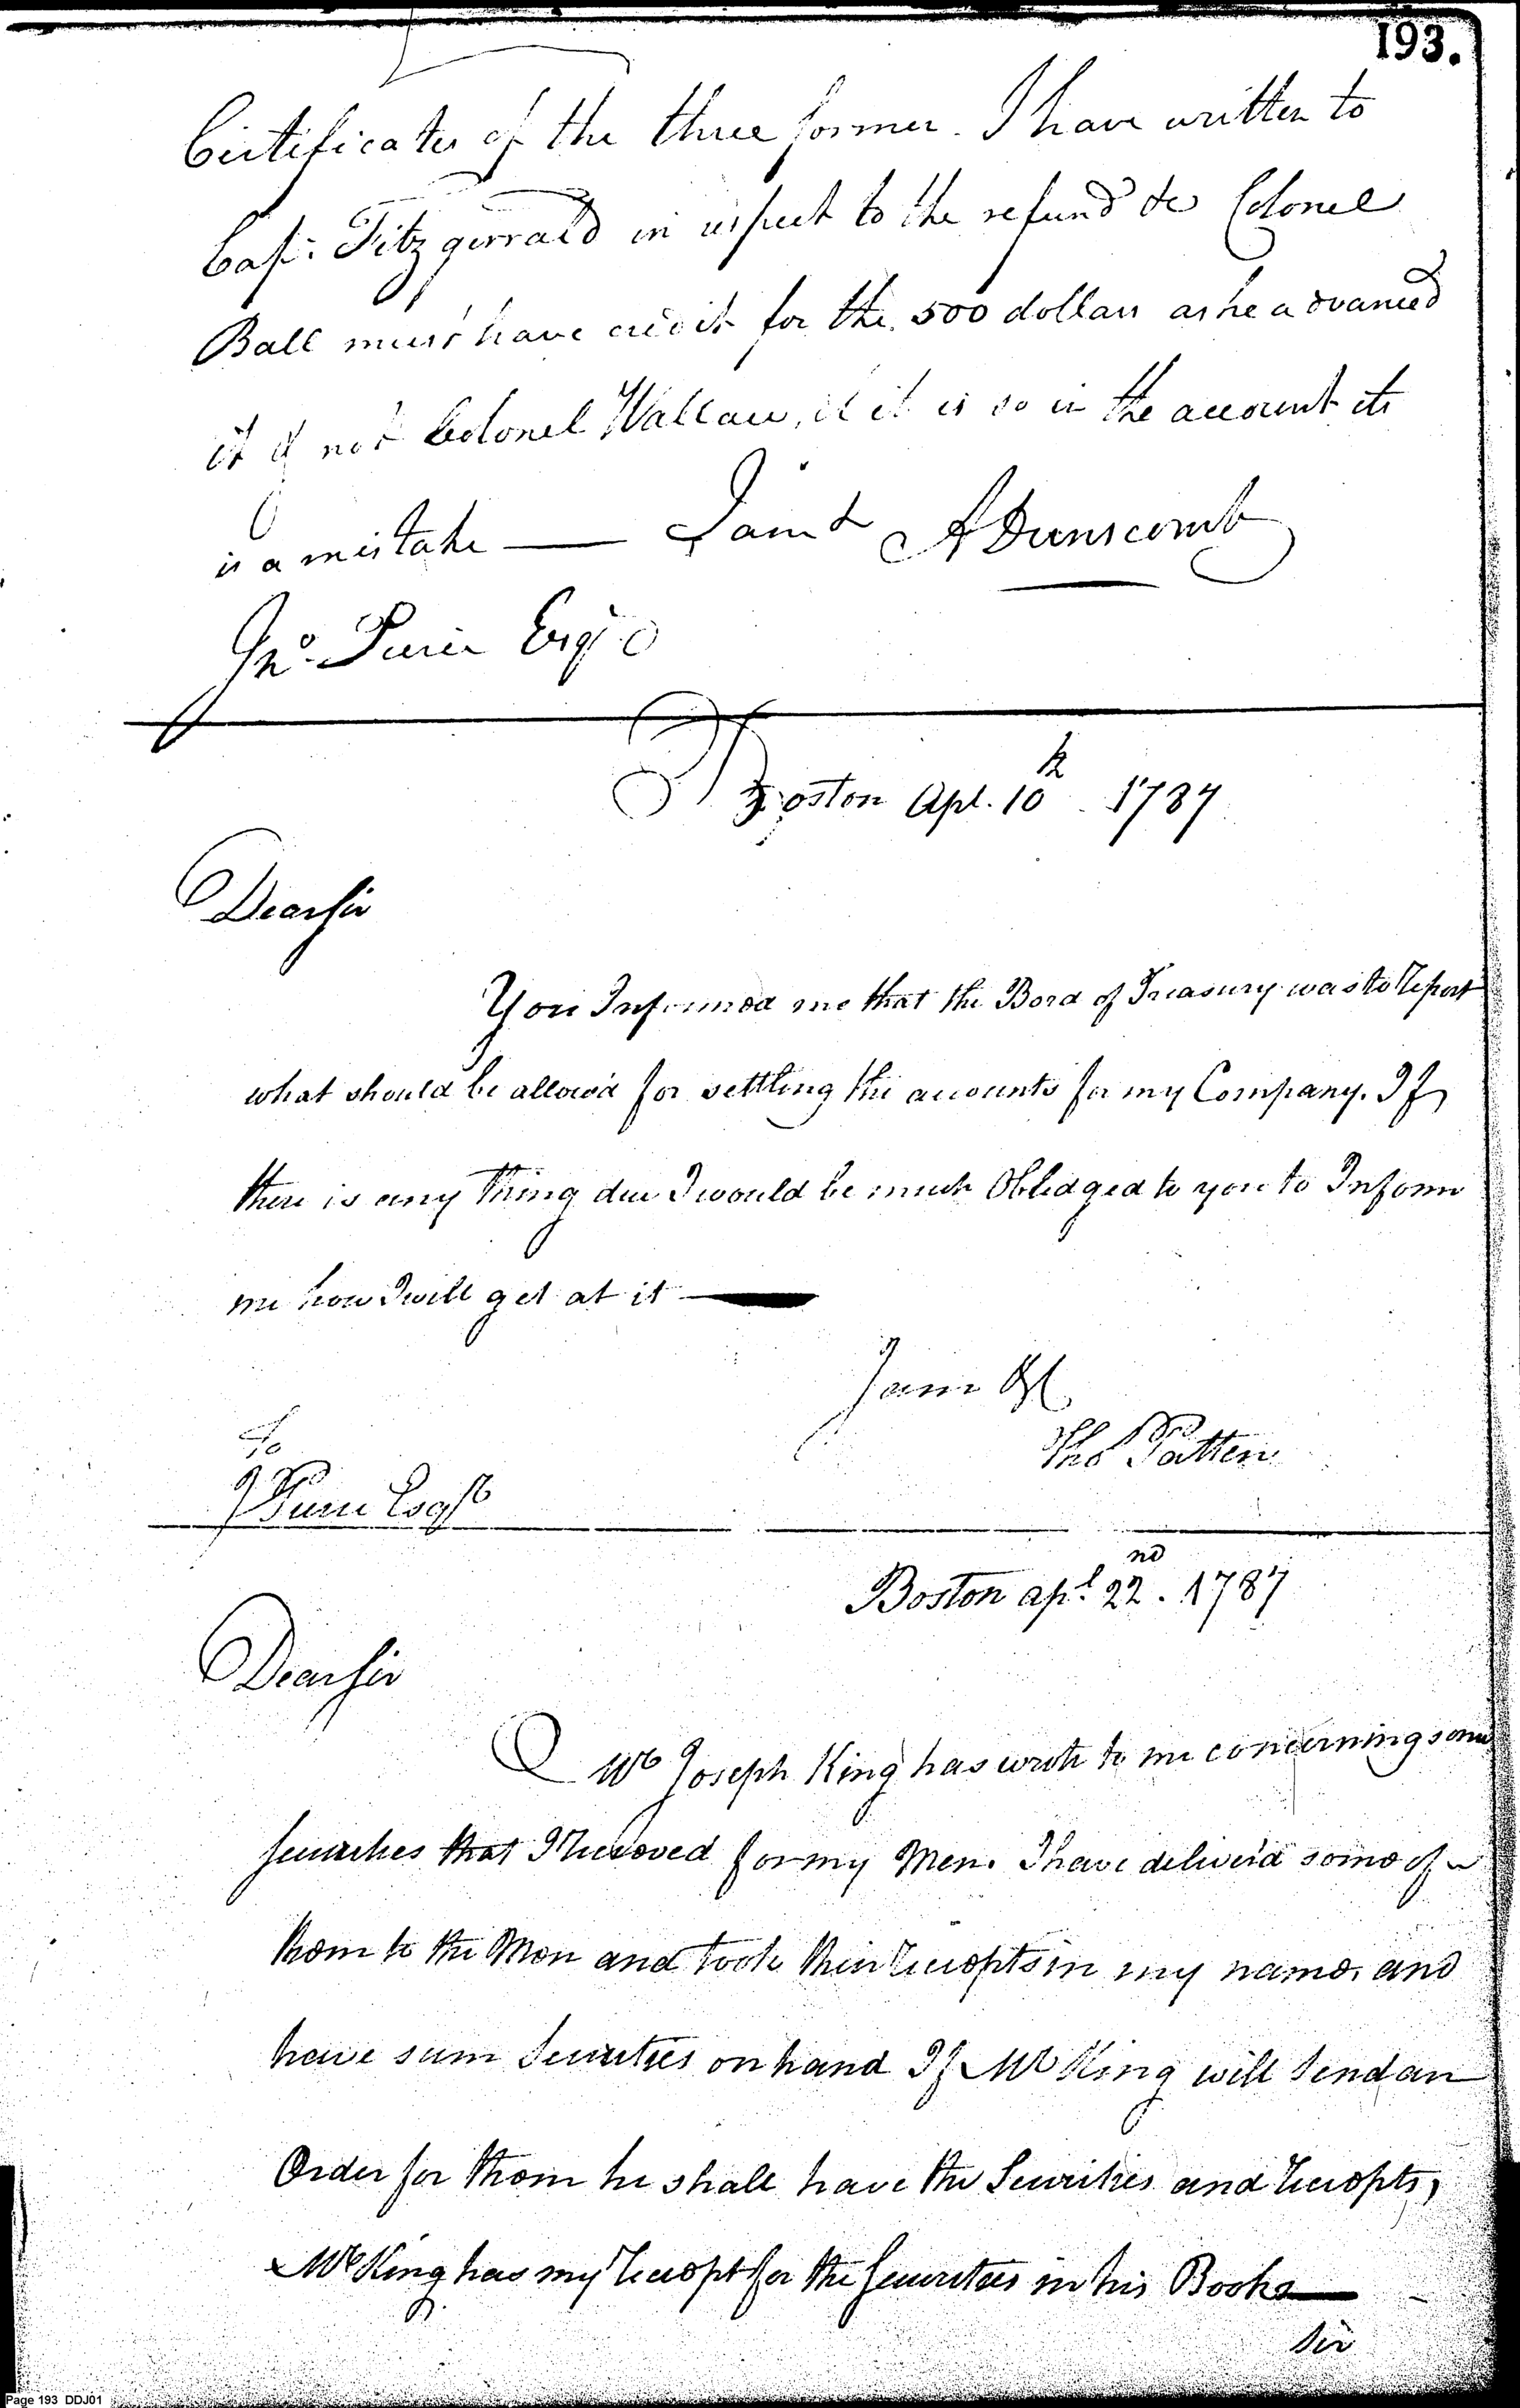 193.
Certificates of the three former. I have written to
Cap: Fitzgerrald in respect to the refund &c Colonel
Ball must have credit for the 500 dollars as he advanced
it & not Colonel Wallace, if it is so in the account it
is a mistake — I am &c A Dunscomb
Jno. Pierce Esqr
Boston Apl. 10th 1787
Dear Sir
You Informed me that the Bord of Treasury was to Report
what should be allow'd for settling the accounts for my Company. If
there is any thing due I would be much Obledged to you to Inform
me how I will get at it —
I am &c
Tho Patten
To
J Pierce Esqr
Boston apl 22nd. 1787
Dear Sir
Mr Joseph King has wrote to me concerning some
Securities that I Receved for my Men. I have deliver'd some of
them to the Men and took their Recepts in my name, and
have sum Securities on hand If Mr King will Send an
Order for them he shall have the Securities and Recepts,
Mr King has my Recept for the Securities in his Books —
Sir
Page 193 DDJ01